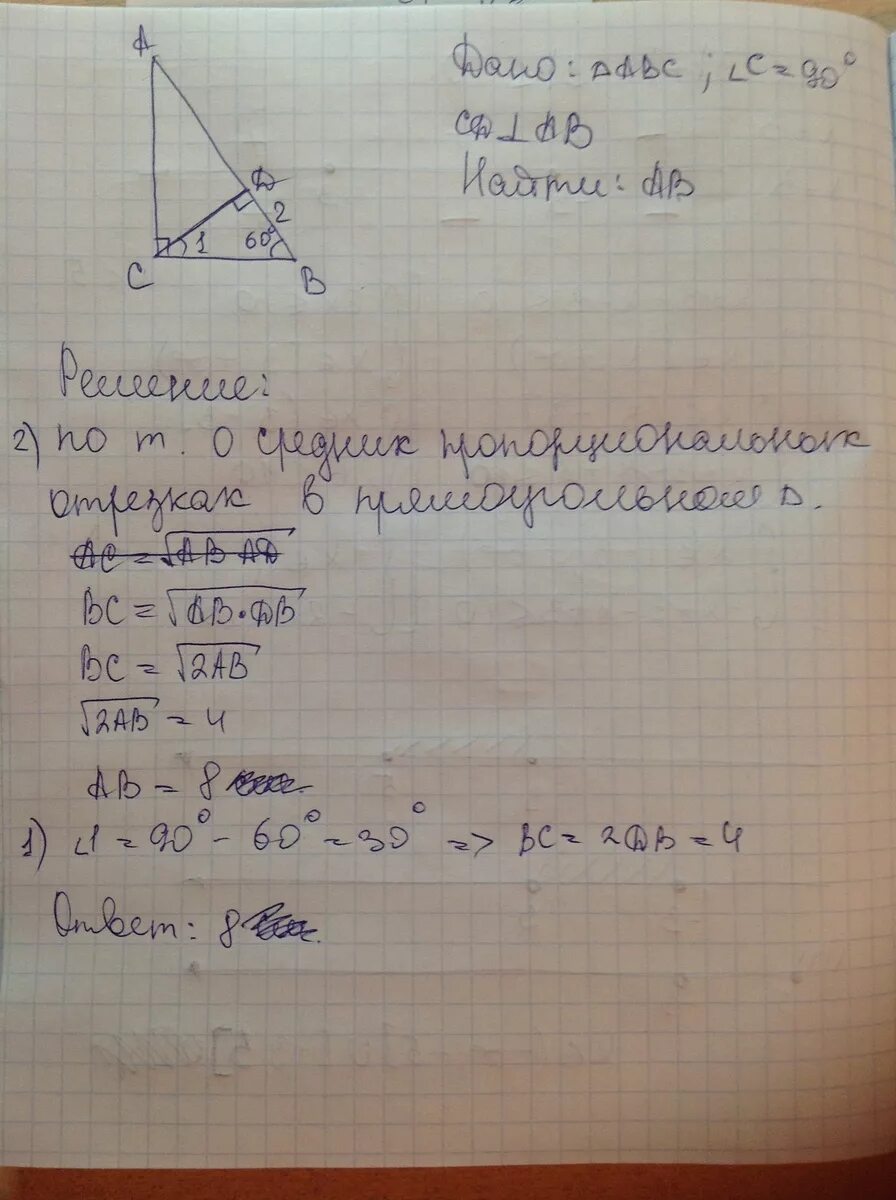 A
Д
2
1
60°
C
B
Дано: ΔABC; ∠C = 90°
CД ⊥ AB
Найти: AB
Решение:
2) по т. о средних пропорциональных
отрезках в прямоугольном Δ.
AC = √AB AД
BC = √AB·ДB
BC = √2AB
√2AB = 4
AB = 8
1) ∠1 = 90° - 60° = 30° => BC = 2ДB = 4
Ответ: 8